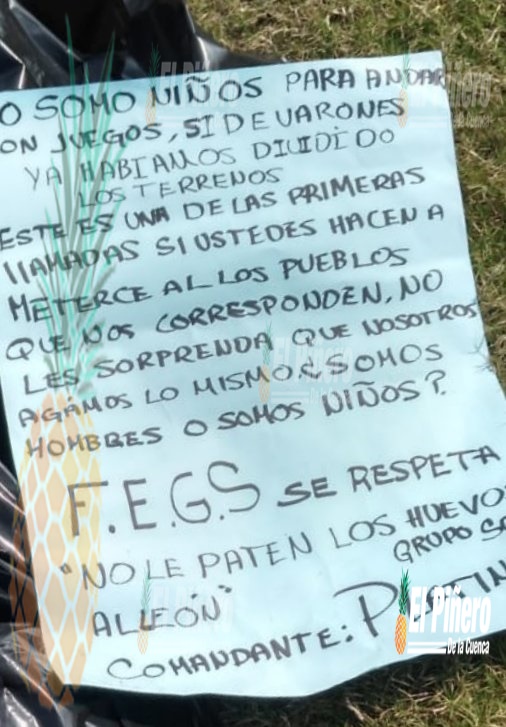 O SOMO NIÑOS PARA ANDAR
ON JUEGOS, SI DE VARONES
YA HABIAMOS DIUIDIDO
LOS TERRENOS
ESTE ES UNA DE LAS PRIMERAS
llAMADAS SI USTEDES HACEN A
METERCE AL LOS PUEBLOS
QUE NOS CORRESPONDEN, NO
LES SORPRENDA QUE NOSOTROS
AGAMOS LO MISMO
SOMOS
HOMBRES O SOMOS NIÑOS?
F.E.G.S SE RESPETA
"NO LE PATEN LOS HUEVO
AL LEON"
GRUPO
COMANDANTE:
El Piñero
De la Cuenca
El Piñero
El Piñero